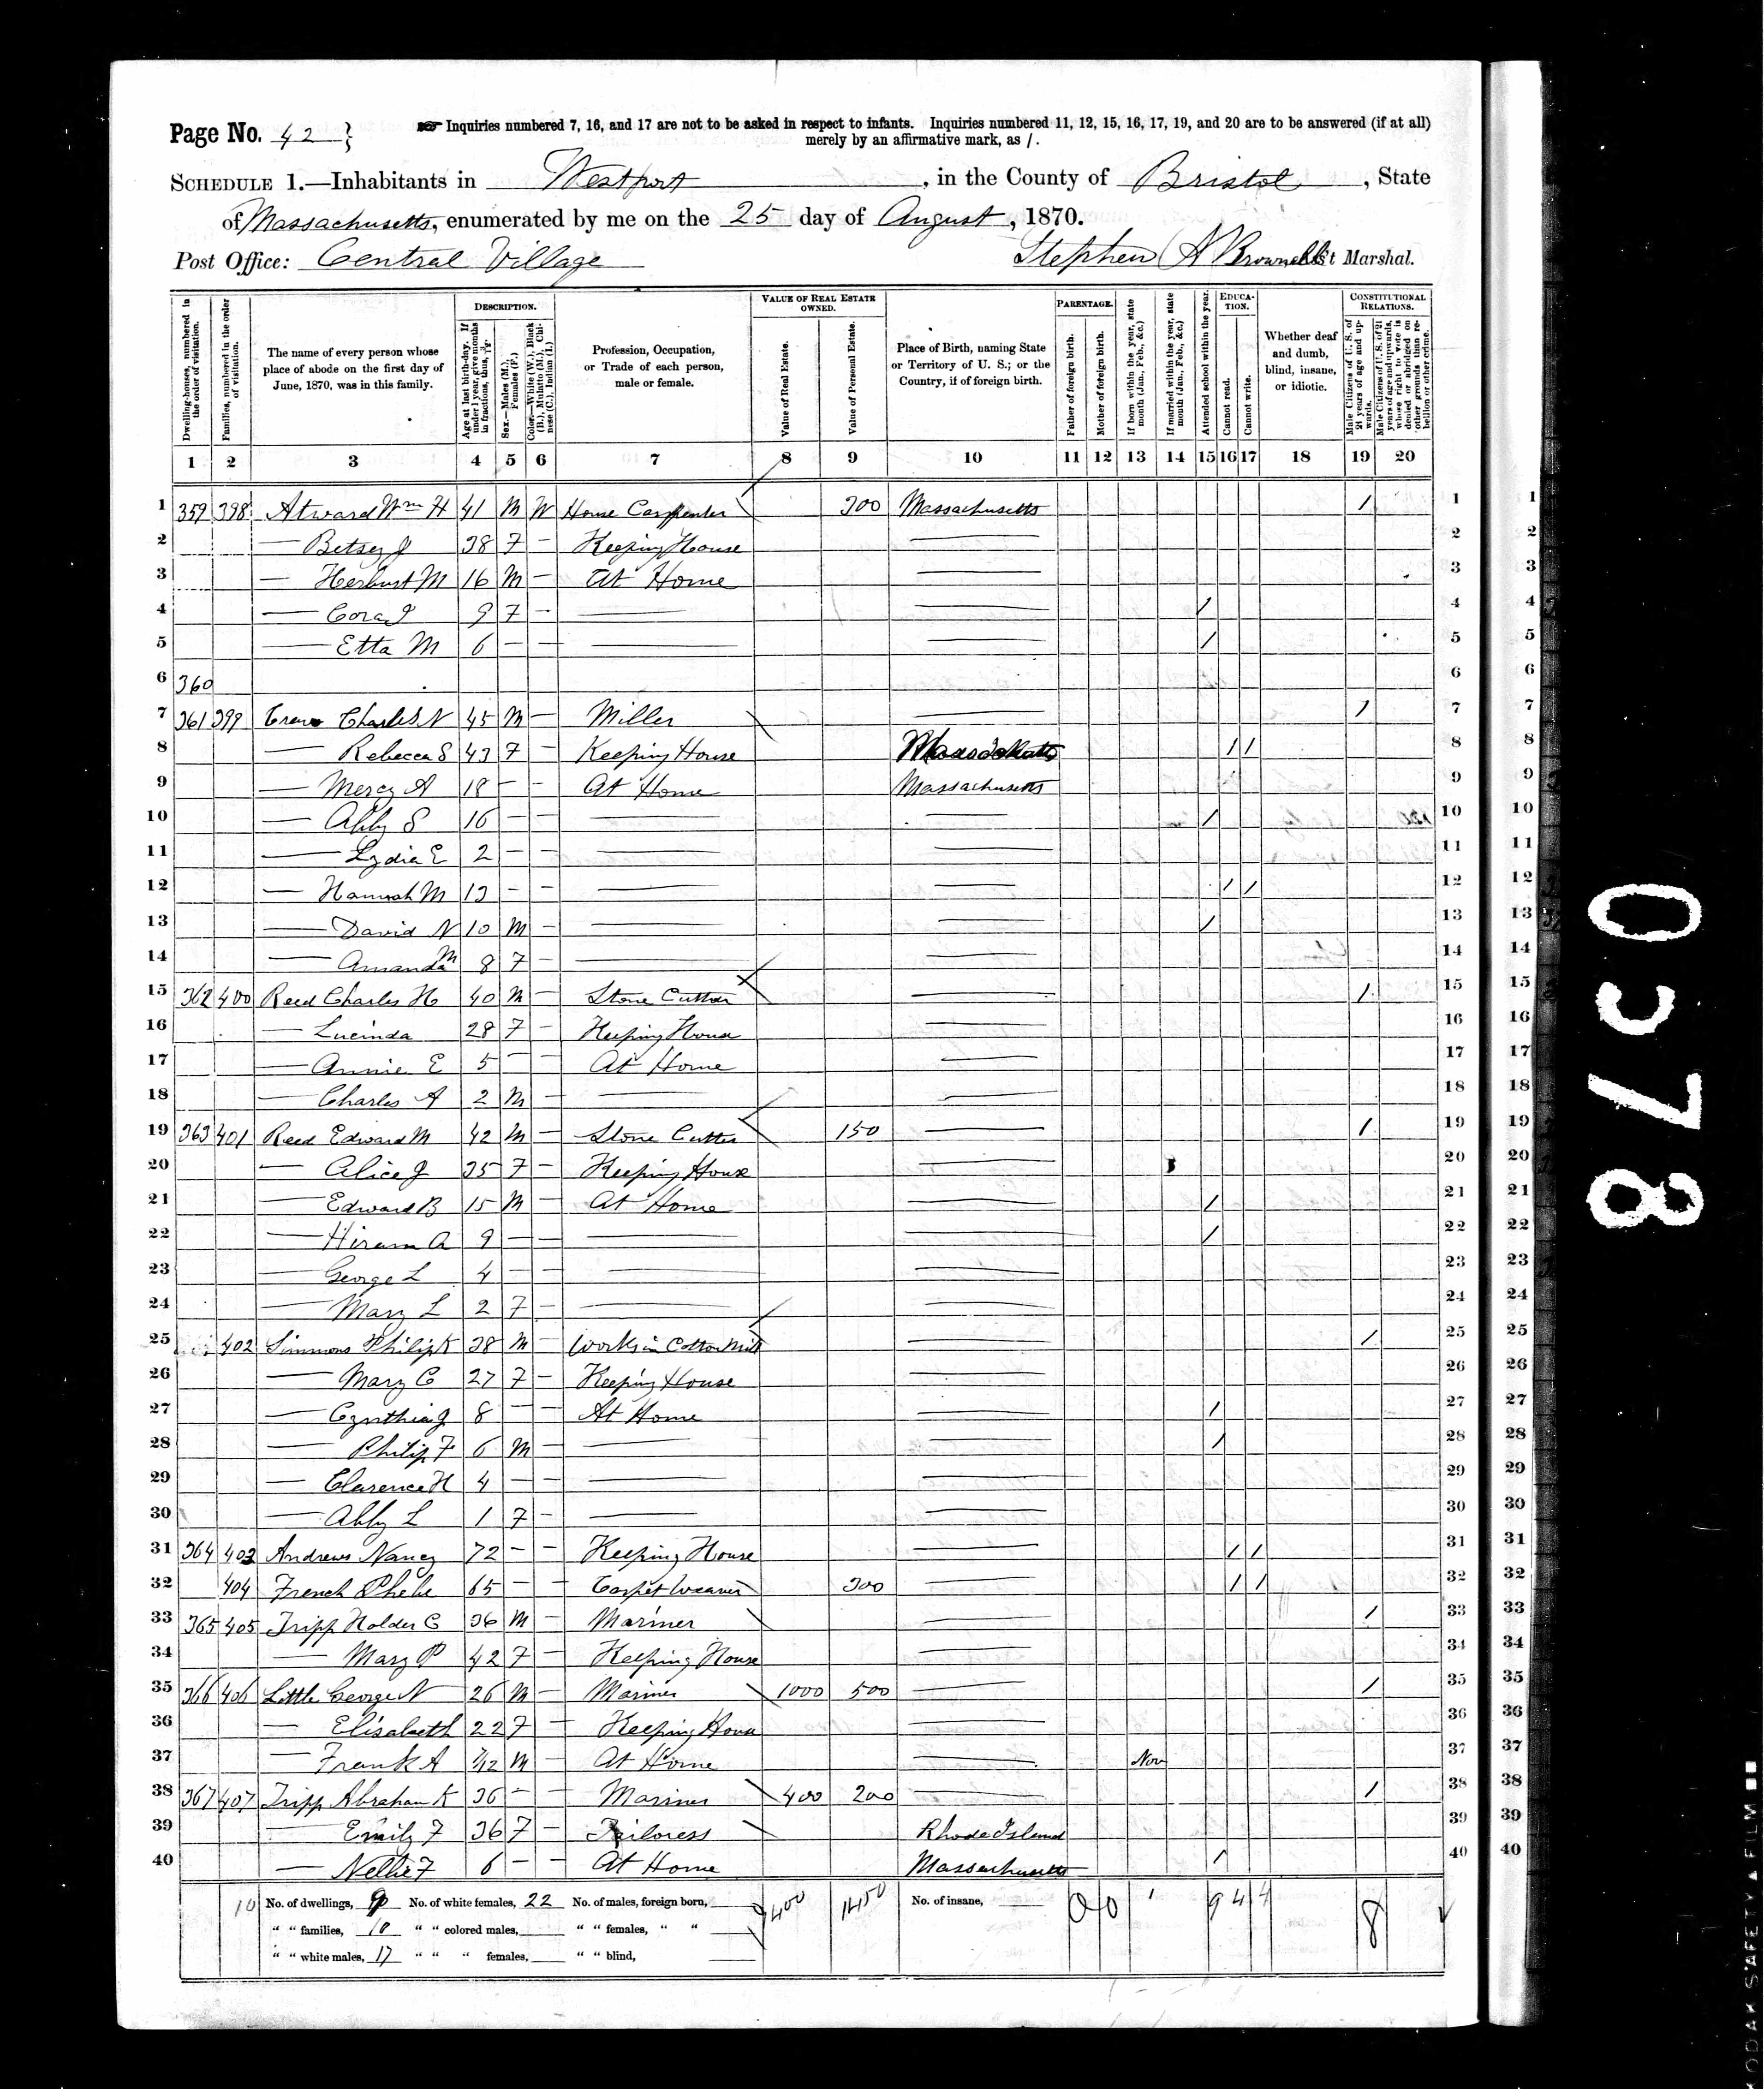 Page No. 42
Inquiries numbered 7, 16, and 17 are not to be asked in respect to infants. Inquiries numbered 11, 12, 15, 16, 17, 19, and 20 are to be answered (if at all)
merely by an affirmative mark, as /.
SCHEDULE 1.—Inhabitants in Westport, in the County of Bristol, State
of Massachusetts, enumerated by me on the 25 day of August, 1870.
Post Office: Central Village
Stephen A Brownell Ass't Marshal.
Dwelling-houses, numbered in the order of visitation.
Families, numbered in the order of visitation.
The name of every person whose place of abode on the first day of June, 1870, was in this family.
DESCRIPTION.
Age at last birth-day. If under 1 year, give months in fractions, thus, 3/12.
Sex.—Males (M.), Females (F.)
Color.—White (W.), Black (B.), Mulatto (M.), Chinese (C.), Indian (I.)
Profession, Occupation, or Trade of each person, male or female.
VALUE OF REAL ESTATE OWNED.
Value of Real Estate.
Value of Personal Estate.
Place of Birth, naming State or Territory of U. S.; or the Country, if of foreign birth.
PARENTAGE.
Father of foreign birth.
Mother of foreign birth.
If born within the year, state month (Jan., Feb., &c.)
If married within the year, state month (Jan., Feb., &c.)
Attended school within the year.
EDUCATION.
Cannot read.
Cannot write.
Whether deaf and dumb, blind, insane, or idiotic.
CONSTITUTIONAL RELATIONS.
Male Citizens of U. S. of 21 years of age and upwards.
Male Citizens of U. S. of 21 years of age and upwards, whose right to vote is denied or abridged on other grounds than rebellion or other crime.
1 2 3 4 5 6 7 8 9 10 11 12 13 14 15 16 17 18 19 20
1 359 398 Atward Wm H 41 M W House Carpenter 300 Massachusetts / 1
2 — Betsey J 38 F — Keeping House — 2
3 — Herbert M 16 M — At Home — 3
4 — Cora J 9 F — — — / 4
5 — Etta M 6 — — — — / 5
6 360 6
7 361 399 Charles N 45 M — Miller — / 7
8 — Rebecca S 43 F — Keeping House / / 8
9 — Mercy A 18 — — At Home Massachusetts 9
10 — Abby S 16 — — — — / 10
11 — Lydia E 2 — — — — 11
12 — Hannah M 13 — — — — / / 12
13 — David N 10 M — — — / 13
14 — Amanda M 8 F — — — 14
15 362 400 Reed Charles H 40 M — Stone Cutter — / 15
16 — Lucinda 28 F — Keeping House — 16
17 — Annie E 5 — — At Home — 17
18 — Charles A 2 M — — — 18
19 363 401 Reed Edward M 42 M — Stone Cutter 150 — / 19
20 — Alice J 35 F — Keeping House — 20
21 — Edward B 15 M — At Home — / 21
22 — Hiram A 9 — — — — / 22
23 — George L 4 — — — — 23
24 — Mary L 2 F — — — 24
25 402 Simmons Philip K 38 M — Works in Cotton Mill — / 25
26 — Mary C 27 F — Keeping House — 26
27 — Cynthia J 8 — — At Home — / 27
28 — Philip F 6 M — — — / 28
29 — Clarence H 4 — — — — 29
30 — Abby L 1 F — — — 30
31 364 403 Andrews Nancy 72 — — Keeping House — / / 31
32 404 French Phebe 65 — — Carpet Weaver 300 — / / 32
33 365 405 Tripp Holder C 36 M — Mariner — / 33
34 — Mary P 42 F — Keeping House — 34
35 366 406 Little George N 26 M — Mariner 1000 500 — / 35
36 — Elisabeth 22 F — Keeping House — 36
37 — Frank A 7/12 M — At Home — Nov 37
38 367 407 Tripp Abraham K 36 — — Mariner 400 200 — / 38
39 — Emily F 36 F — Tailoress Rhode Island 39
40 — Nellie F 6 — — At Home Massachusetts / 40
10 No. of dwellings, 9 No. of white females, 22 No. of males, foreign born, 1400 1450 No. of insane, 0 0 1 9 4 4 8
" " families, 10 " " colored males, " " females, " "
" " white males, 17 " " " females, " " blind,
1
2
3
4
5
6
7
8
9
10
11
12
13
14
15
16
17
18
19
20
21
22
23
24
25
26
27
28
29
30
31
32
33
34
35
36
37
38
39
40
0378
KODAK SAFETY FILM